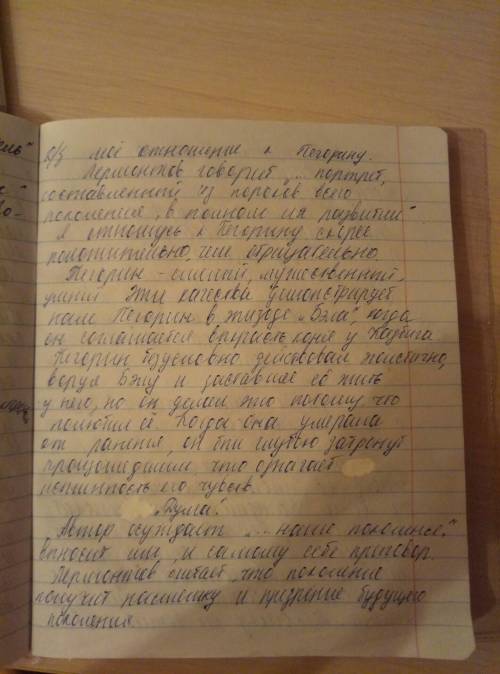 д/з моё отношение к Печорину.
Лермонтов говорит „... портрет,
составленный из пороков всего
поколения, в полном их развитии“
Я отношусь к Печорину скорее
положительно, чем отрицательно.
Печорин - смелый, мужественный,
Эти качества демонстрирует
нам Печорин в эпизоде „Бэла“, когда
он соглашается выкрасть коня у Казбича
Печорин безусловно действовал эгоистично,
воруя Бэлу и заставляя её жить
у него, но он делал это потому что
полюбил её. Когда она умерала
от ранения, он был глубоко затронут
произошедшим, что
истинность его чувств.
„Дума“.
Автор осуждает „... наше поколенье“
выносит им, и самому себе приговор.
Лермонтов считает, что поколение
получит насмешку и презрение будущего
поколения